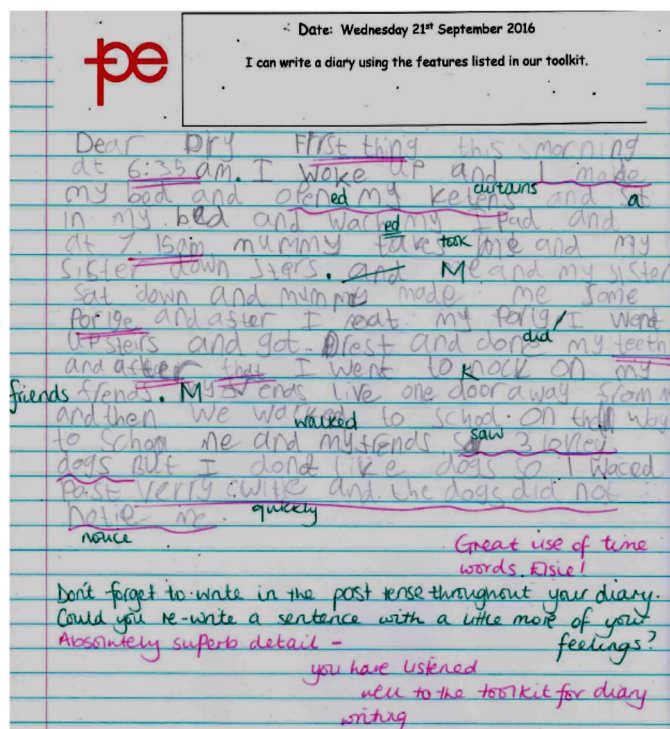 pe
Date: Wednesday 21st September 2016
I can write a diary using the features listed in our toolkit.
Dear Dry First thing this smorning
at 6:35am. I woke up and I made
curtains
my bed and opened my ketens and sat
a
in my bed and wached my Ipad and
at 7.15am mummy takes took me and my
sister down sters. and Me and my sister
sat down and mummy made me some
porige and after I
my porige I went
upsteirs and got Drest and done did my teeth
and after that I went to knock on my
friends frends. My frends live one door away from
and then we walked to school. on the way
walked
to school me and my frends saw 3 loney
dogs But I donot like dogs so I waced
past verry cwitle and the dogs did not
notie me.
quickly
notice
Great use of time
words Elsie!
Don't forget to write in the past tense throughout your diary.
Could you re-write a sentence with a little more of your
feelings?
Absolutely superb detail -
you have listened
well to the toolkit for diary
writing